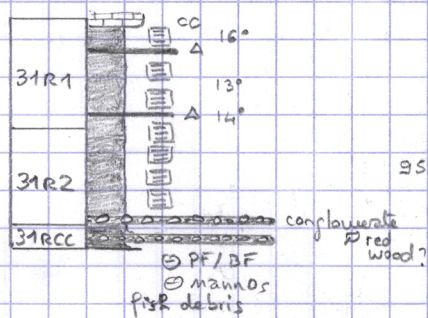 CC
16°
Δ
31R1
13°
Δ 14°
31R2
95
conglomerate
red
wood?
31RCC
⊖ PF/BF
⊖ nannos
fish debris